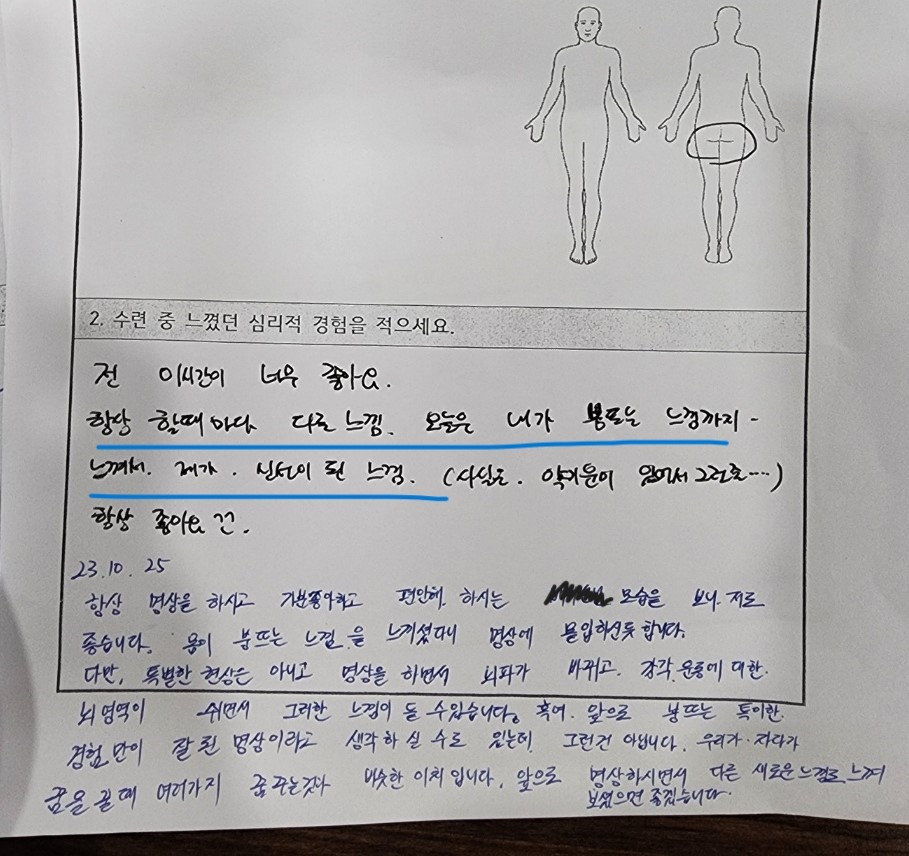 2. 수련 중 느꼈던 심리적 경험을 적으세요.
전 이시간이 너무 좋아요.
항상 할때마다 다른 느낌. 오늘은 내가 붕뜨는 느낌까지 -
느껴서. 제가. 신선이 된 느낌. (사실은. 약기운이 있어서 그런호····)
항상 좋아요 건.
23. 10. 25
항상 명상을 하시고 기분좋아하고 편안해. 하시는 모습을 보니. 저도
좋습니다. 몸이 붕뜨는 느낌을 느끼셨다니 명상에 몰입하신듯 합니다.
다만, 특별한 현상은 아니고 명상을 하면서 뇌파가 바뀌고. 감각.운동에 대한.
뇌 영역이 쉬면서 그러한 느낌이 들 수있습니다. 혹여. 앞으로 붕뜨는 특이한.
경험만이 잘 된 명상이라고 생각하실 수도 있는데. 그런건 아닙니다. 우리가. 자다가
꿈을 꿀때 여러가지 꿈꾸는것과 비슷한 이치 입니다. 앞으로 명상하시면서 다른 새로운 느낌도 느껴
보셨으면 좋겠습니다.